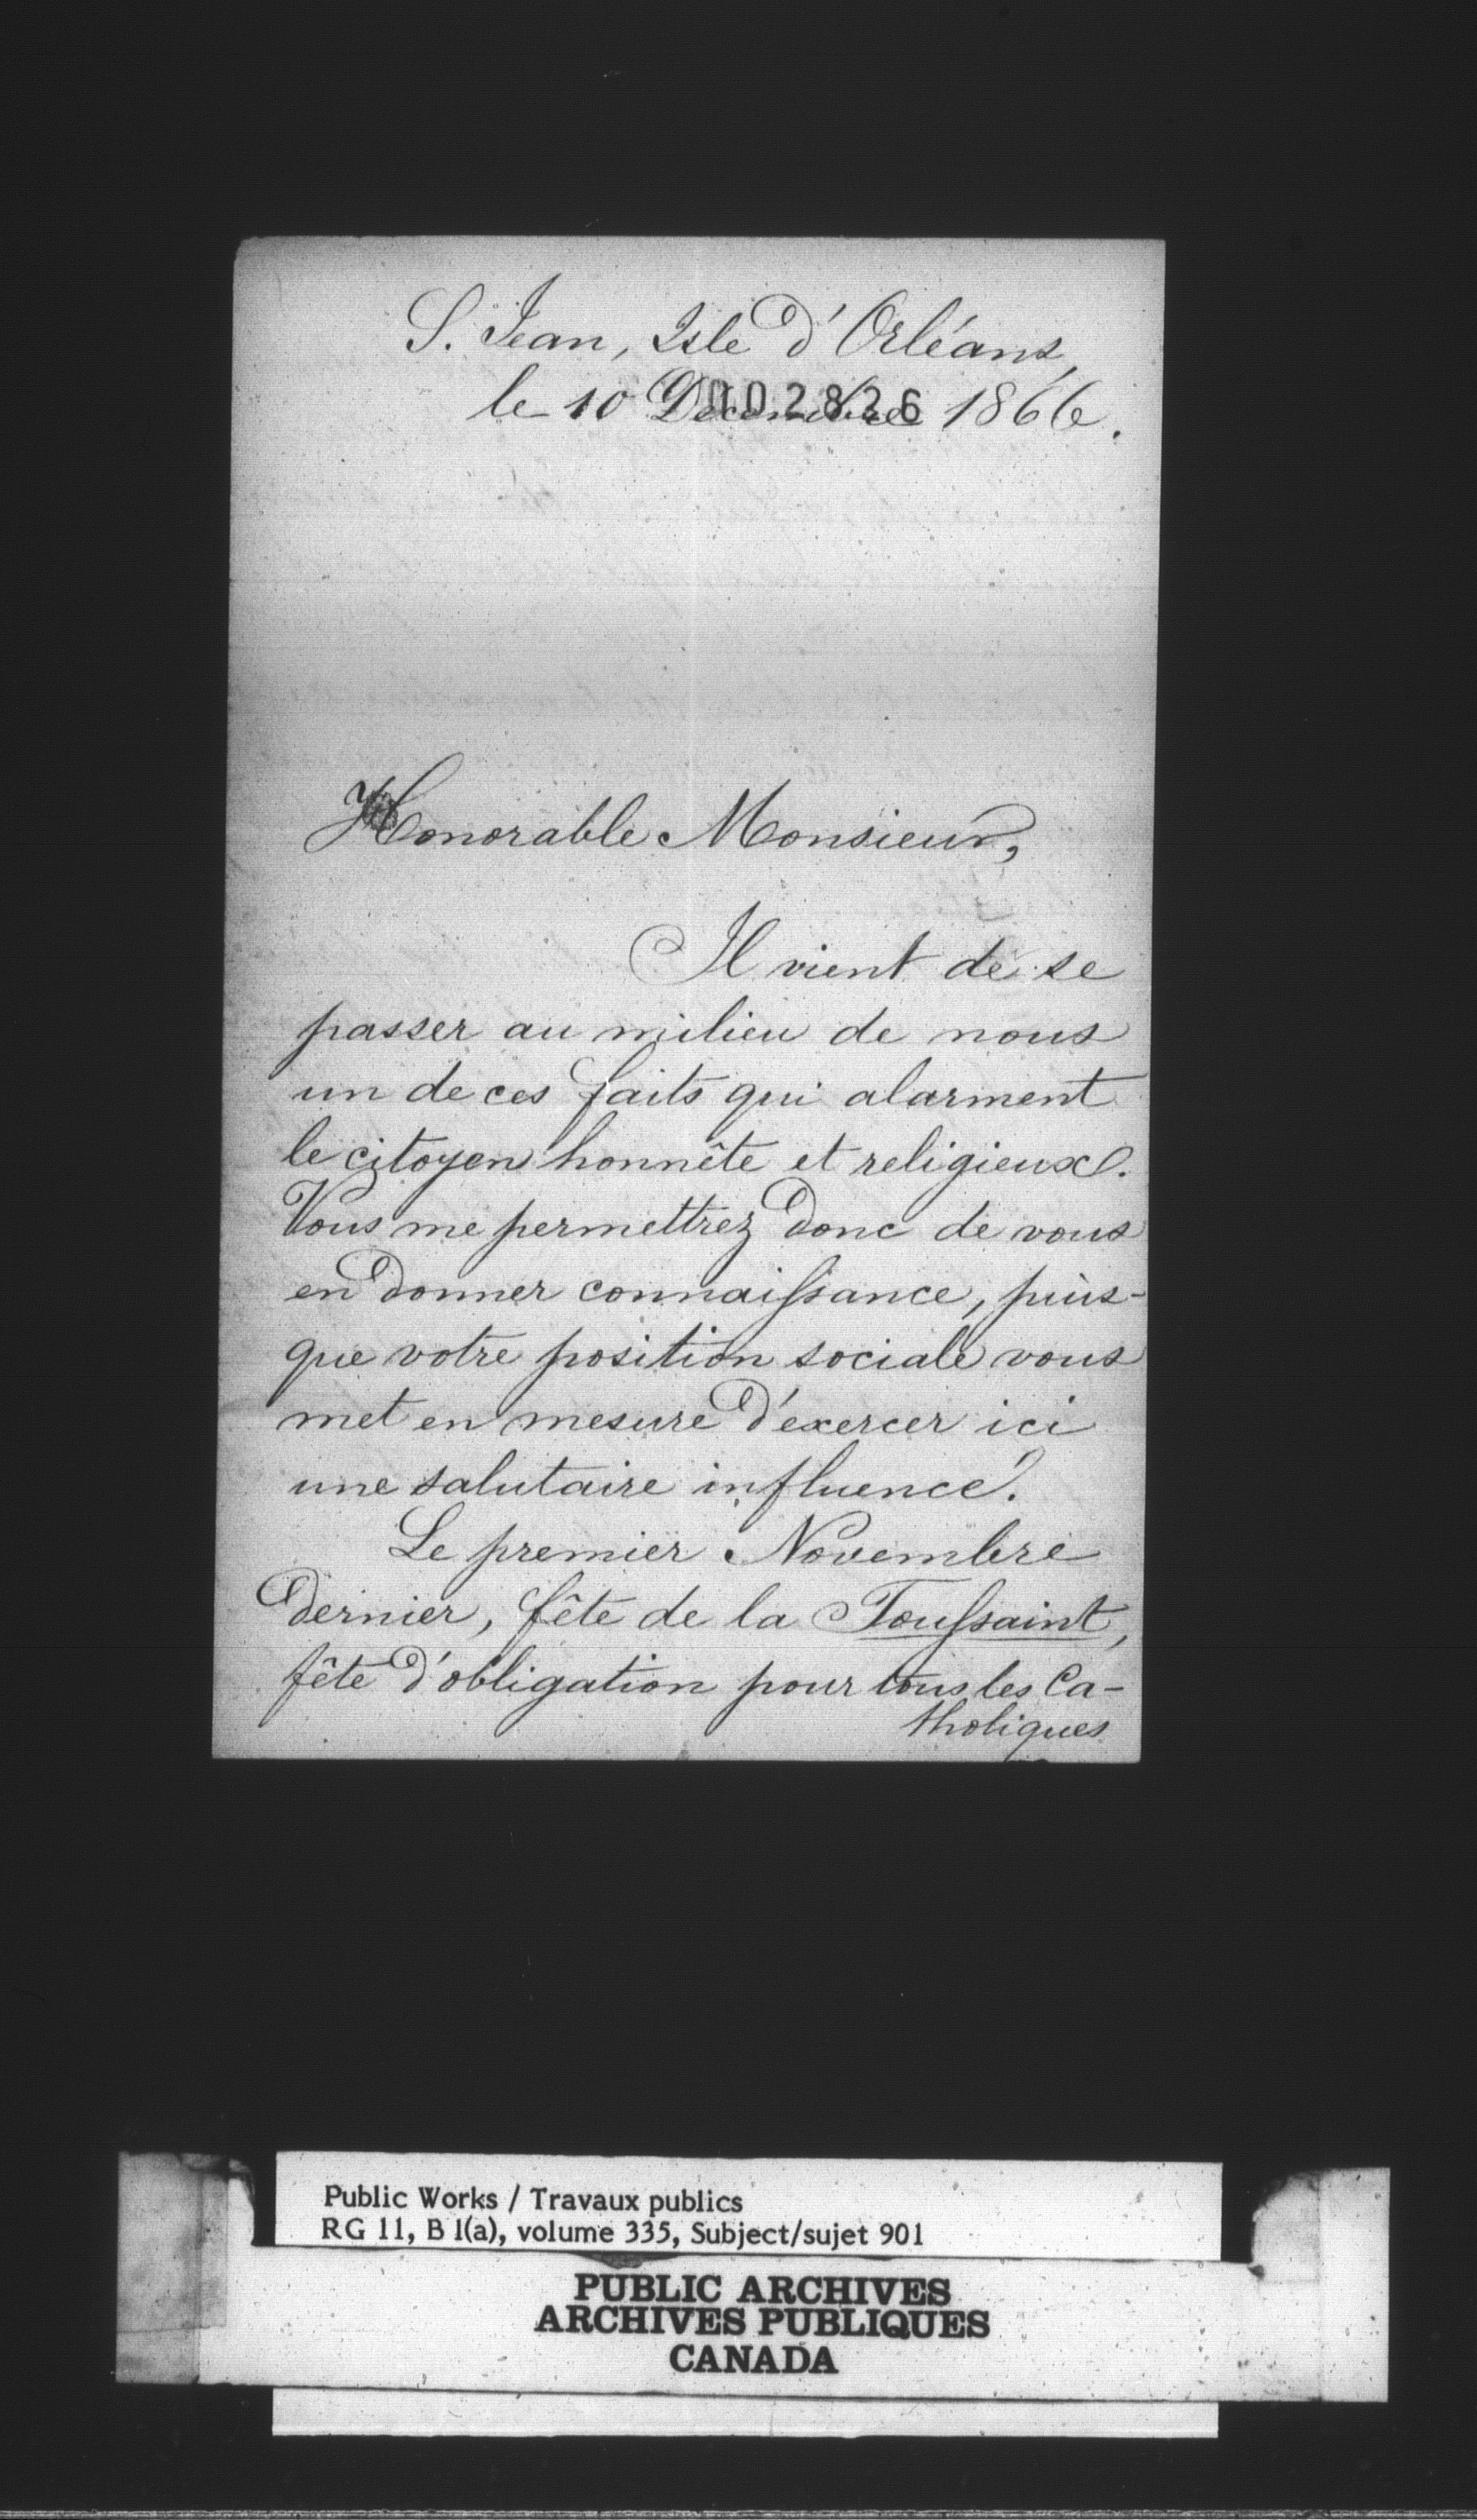 S. Jean, Isle d'Orléans,
le 10 Décembre 1866.
002826
Honorable Monsieur,
Il vient de se
passer au milieu de nous
un de ces faits qui alarment
le citoyen honnête et religieux.
Vous me permettrez donc de vous
en donner connaiſsance, puis-
que votre position sociale vous
met en mesure d'exercer ici
une salutaire influence.
Le premier Novembre
dernier, fête de la Touſsaint,
fête d'obligation pour tous les Ca-
tholiques
Public Works / Travaux publics
RG 11, B 1(a), volume 335, Subject/sujet 901
PUBLIC ARCHIVES
ARCHIVES PUBLIQUES
CANADA